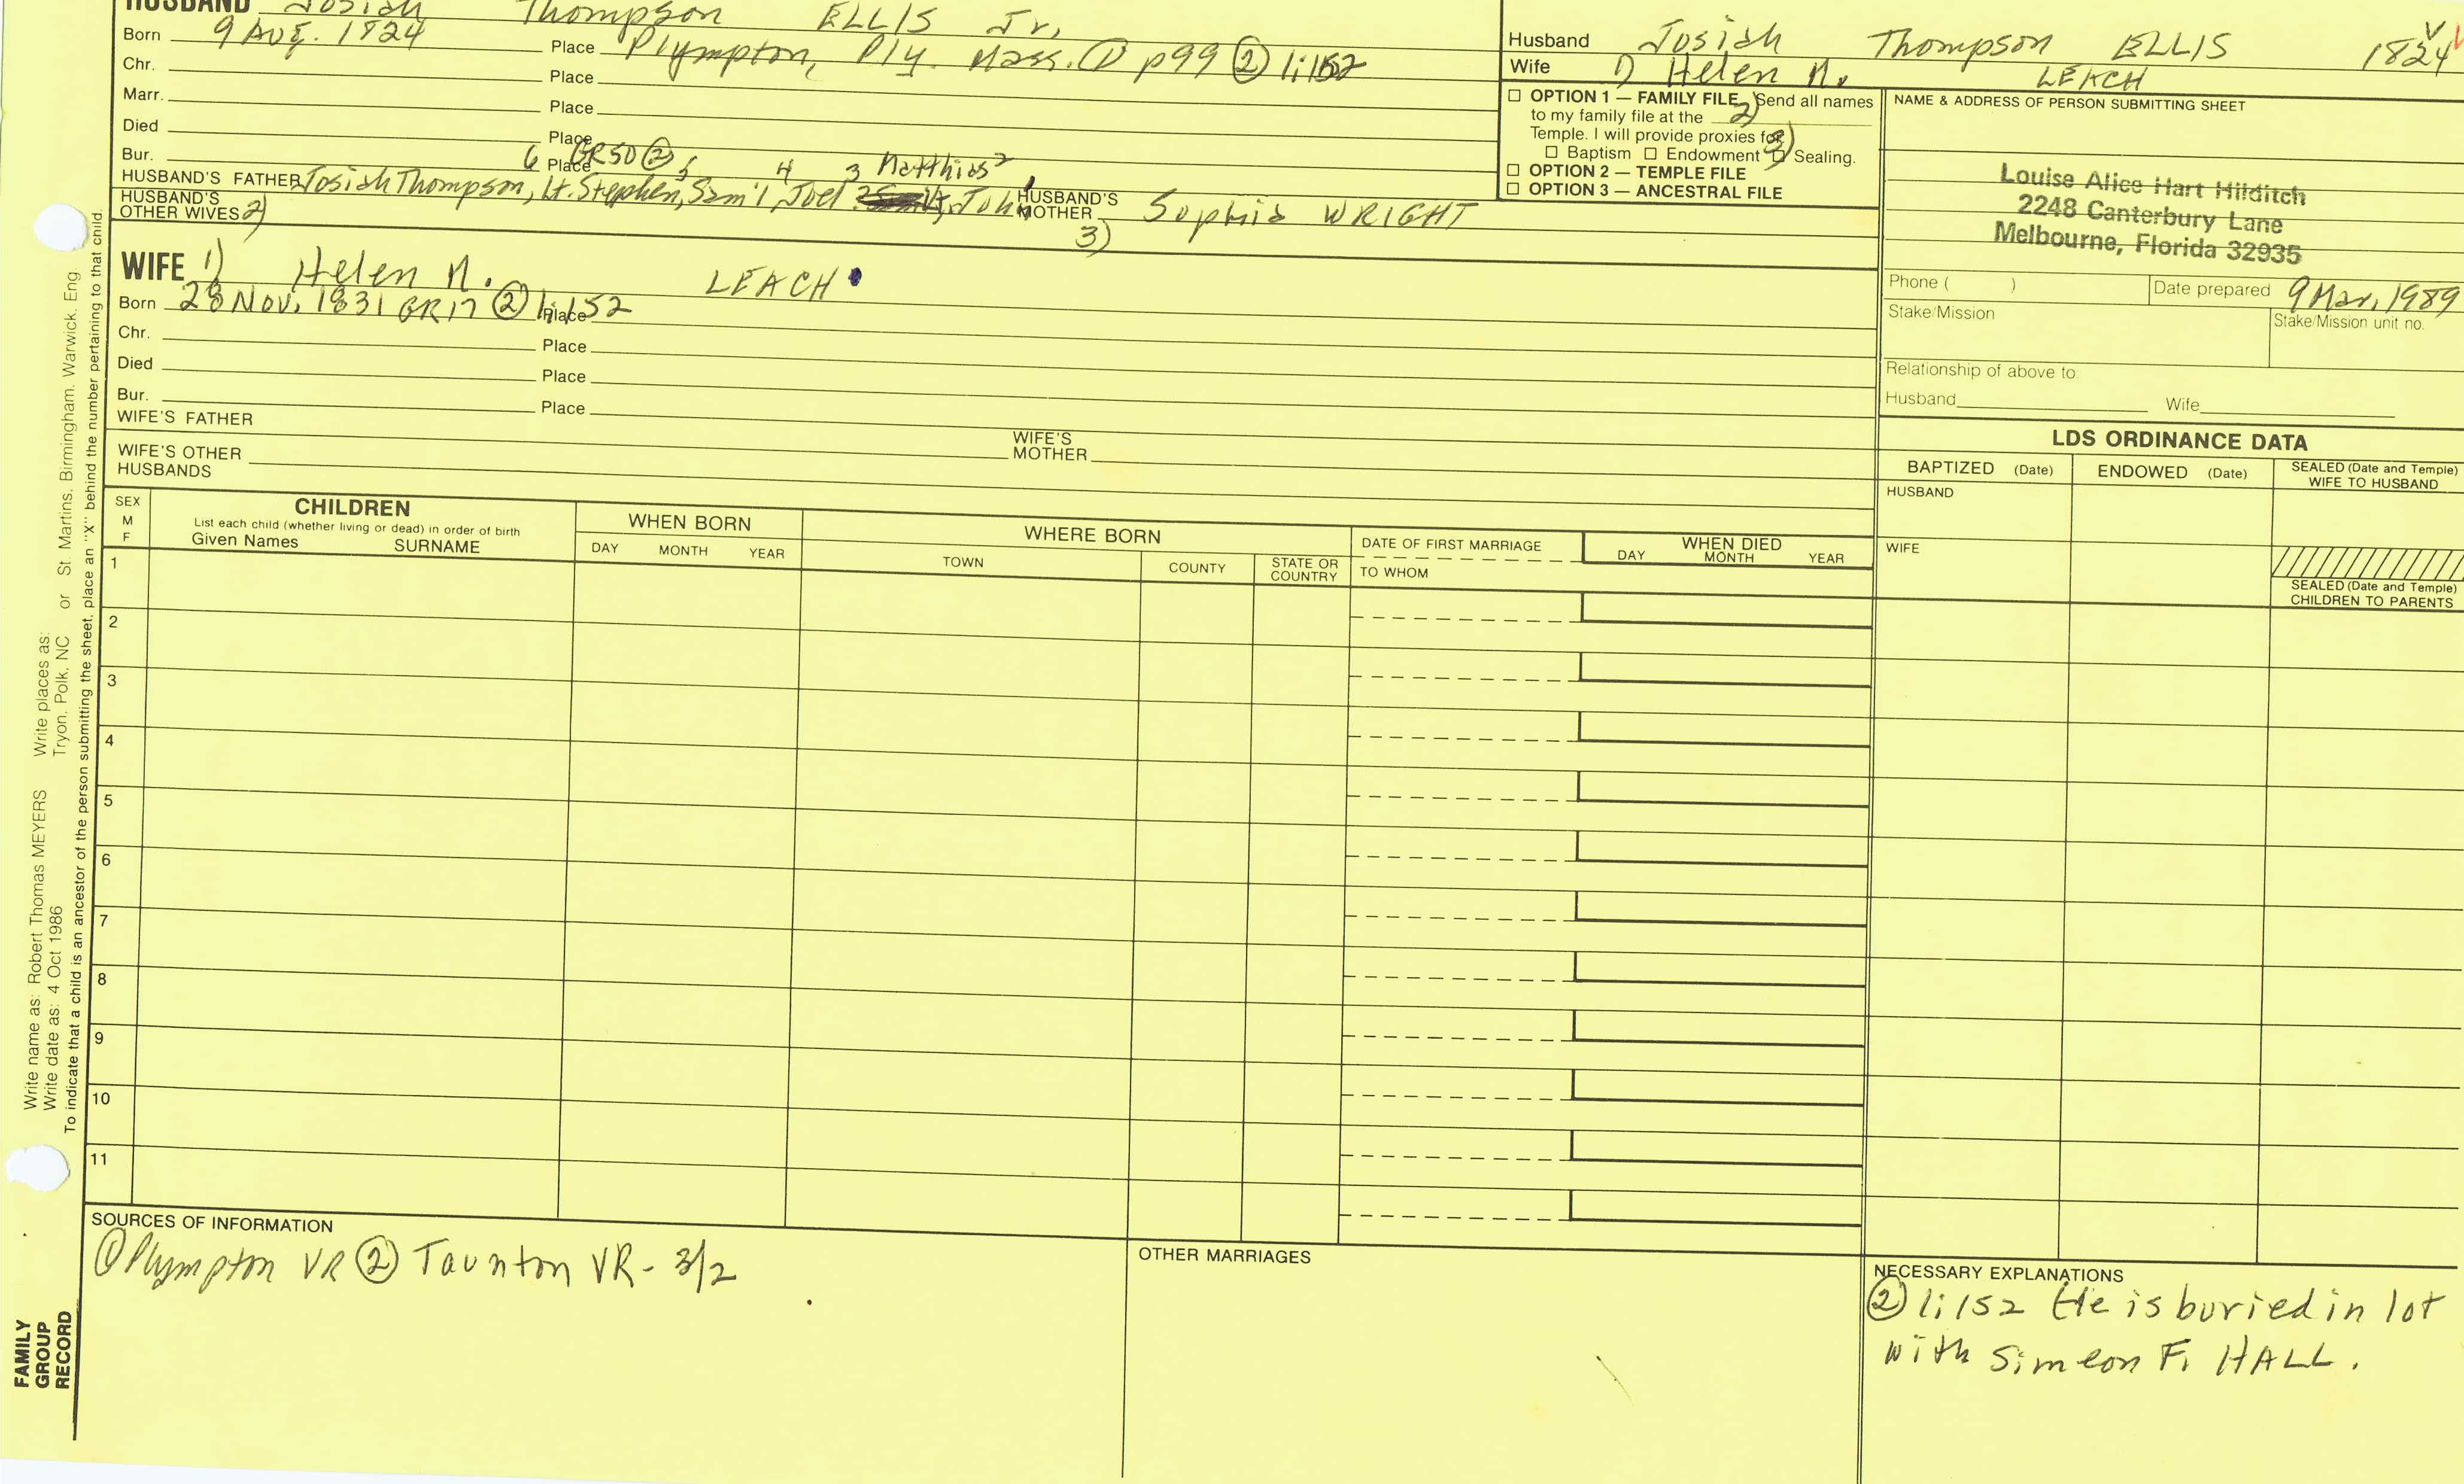 HUSBAND Josiah Thompson ELLIS Jr.
Born 9 Aug. 1824 Place Plympton, Ply. Mass. ① p99 ② 1:152
Chr. Place
Marr. Place
Died Place
Bur. Place GR50 ②
6 5 4 3 Matthias2
HUSBAND'S FATHER Josiah Thompson, Lt. Stephen, Sam'l, Joel John1
HUSBAND'S MOTHER Sophia WRIGHT
HUSBAND'S OTHER WIVES 2) 3)
WIFE 1) Helen M. LEACH
Born 28 Nov. 1831 GR17 ② 1:152 Place
Chr. Place
Died Place
Bur. Place
WIFE'S FATHER
WIFE'S MOTHER
WIFE'S OTHER HUSBANDS
Husband Josiah Thompson ELLIS 1824
Wife 1) Helen M. LEACH
☐ OPTION 1 — FAMILY FILE 2) Send all names
to my family file at the
Temple. I will provide proxies for 3)
☐ Baptism ☐ Endowment ☐ Sealing.
☐ OPTION 2 — TEMPLE FILE
☐ OPTION 3 — ANCESTRAL FILE
NAME & ADDRESS OF PERSON SUBMITTING SHEET
Louise Alice Hart Hilditch
2248 Canterbury Lane
Melbourne, Florida 32935
Phone ( ) Date prepared 9 Mar. 1989
Stake/Mission Stake/Mission unit no.
Relationship of above to:
Husband Wife
LDS ORDINANCE DATA
BAPTIZED (Date) ENDOWED (Date) SEALED (Date and Temple)
WIFE TO HUSBAND
HUSBAND
WIFE
SEALED (Date and Temple)
CHILDREN TO PARENTS
SEX
M
F
CHILDREN
List each child (whether living or dead) in order of birth
Given Names SURNAME
WHEN BORN
DAY MONTH YEAR
WHERE BORN
TOWN COUNTY STATE OR COUNTRY
DATE OF FIRST MARRIAGE
TO WHOM
WHEN DIED
DAY MONTH YEAR
1
2
3
4
5
6
7
8
9
10
11
SOURCES OF INFORMATION
① Plympton VR ② Taunton VR- 3/2
OTHER MARRIAGES
NECESSARY EXPLANATIONS
② 1:152 He is buried in lot
with Simeon F. HALL.
FAMILY
GROUP
RECORD
Write name as: Robert Thomas MEYERS Write places as: or St. Martins, Birmingham, Warwick, Eng
Write date as: 4 Oct 1986 Tryon, Polk, NC
To indicate that a child is an ancestor of the person submitting the sheet, place an "X" behind the number pertaining to that child.